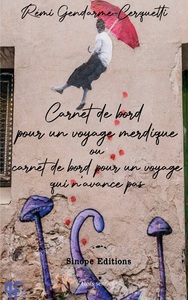 Rémi Gendarme-Cerquetti
Carnet de bord
pour un voyage merdique
ou
carnet de bord pour un voyage
qui n'avance pas
Sinope Editions